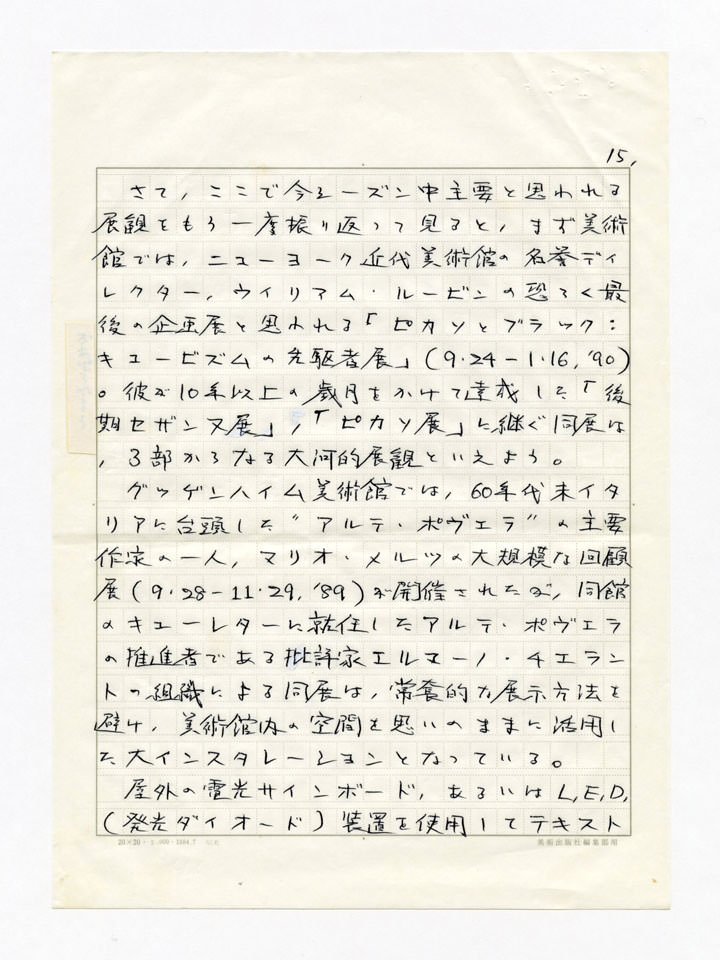 15,
さて，ここで今シーズン中主要と思われる
展観をもう一度振り返って見ると，まず美術
館では，ニューヨーク近代美術館の名誉ディ
レクター，ウイリアム・ルービンの恐らく最
後の企画展と思われる「ピカソとブラック：
キュービズムの先駆者展」（9・24－1・16, '90）
。彼が10年以上の歳月をかけて達成した「後
期セザンヌ展」，「ピカソ展」に継ぐ同展は
，3部からなる大河的展観といえよう。
グッゲンハイム美術館では，60年代末イタ
リアに台頭した"アルテ・ポヴェラ"の主要
作家の一人，マリオ・メルツの大規模な回顧
展（9・28－11・29, '89）が開催されたが，同館
のキューレターに就任したアルテ・ポヴェラ
の推進者である批評家エルマーノ・チェラン
トの組織による同展は，常套的な展示方法を
避け，美術館内の空間を思いのままに活用し
た大インスタレーションとなっている。
屋外の電光サインボード，あるいはL,E,D,
（発光ダイオード）装置を使用してテキスト
20×20 1984.7
美術出版社編集部用